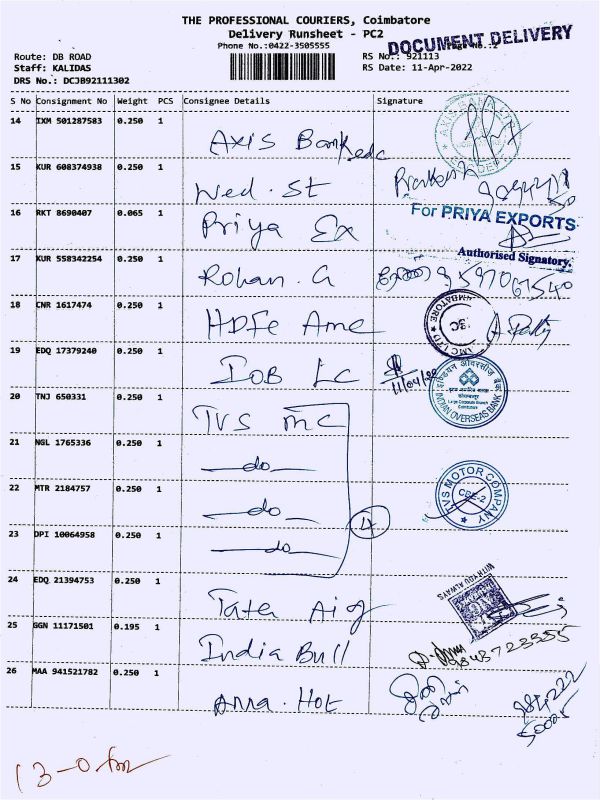 THE PROFESSIONAL COURIERS, Coimbatore
Delivery Runsheet - PC2
Phone No.:0422-3505555
DOCUMENT DELIVERY
Route: DB ROAD
RS No.: 921113
Staff: KALIDAS
RS Date: 11-Apr-2022
DRS No.: DCJB92111302
S No Consignment No Weight PCS Consignee Details Signature
14 IXM 501287583 0.250 1 Axis Bank
15 KUR 608374938 0.250 1 Wed. St
16 RKT 8690407 0.065 1 Priya Ex
For PRIYA EXPORTS
Authorised Signatory.
17 KUR 558342254 0.250 1 Rohan. G
18 CNR 1617474 0.250 1 HDFC Amc
19 EDQ 17379240 0.250 1 IOB LC
INDIAN OVERSEAS BANK
20 TNJ 650331 0.250 1 TVS mc
21 NGL 1765336 0.250 1 do
22 MTR 2184757 0.250 1 do
TVS MOTOR COMPANY
CBE-2
23 DPI 10064958 0.250 1 do
24 EDQ 21394753 0.250 1 Tata Aig
WITH YOU ALWAYS
25 GGN 11171501 0.195 1 India Bull
26 MAA 941521782 0.250 1 Anna. Hot